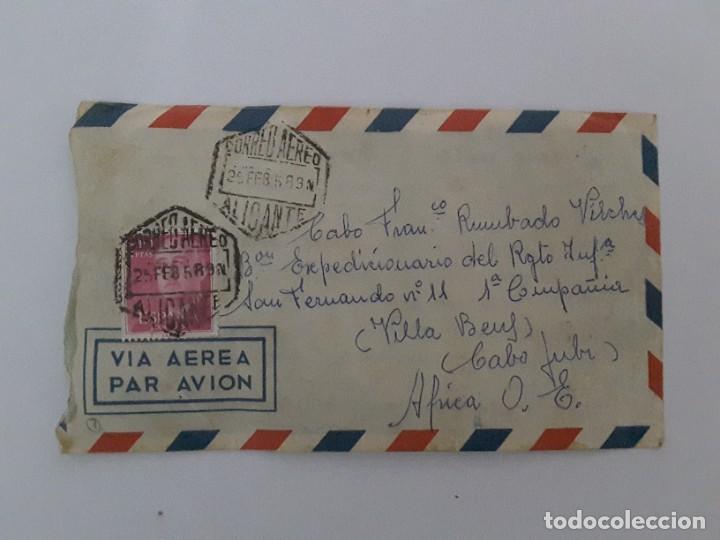 CORREO AEREO
25 FEB 58 9N
ALICANTE
CORREO AEREO
25 FEB 58 9N
ALICANTE
PTAS
ESPAÑA
VIA AEREA
PAR AVION
Cabo Fran.co Rumbado Vilches
Bon Expedicionario del Rgto Infª
San Fernando nº 11 1ª Compañia
(Villa Bens)
(Cabo Jubi)
Africa O. E.
todocoleccion